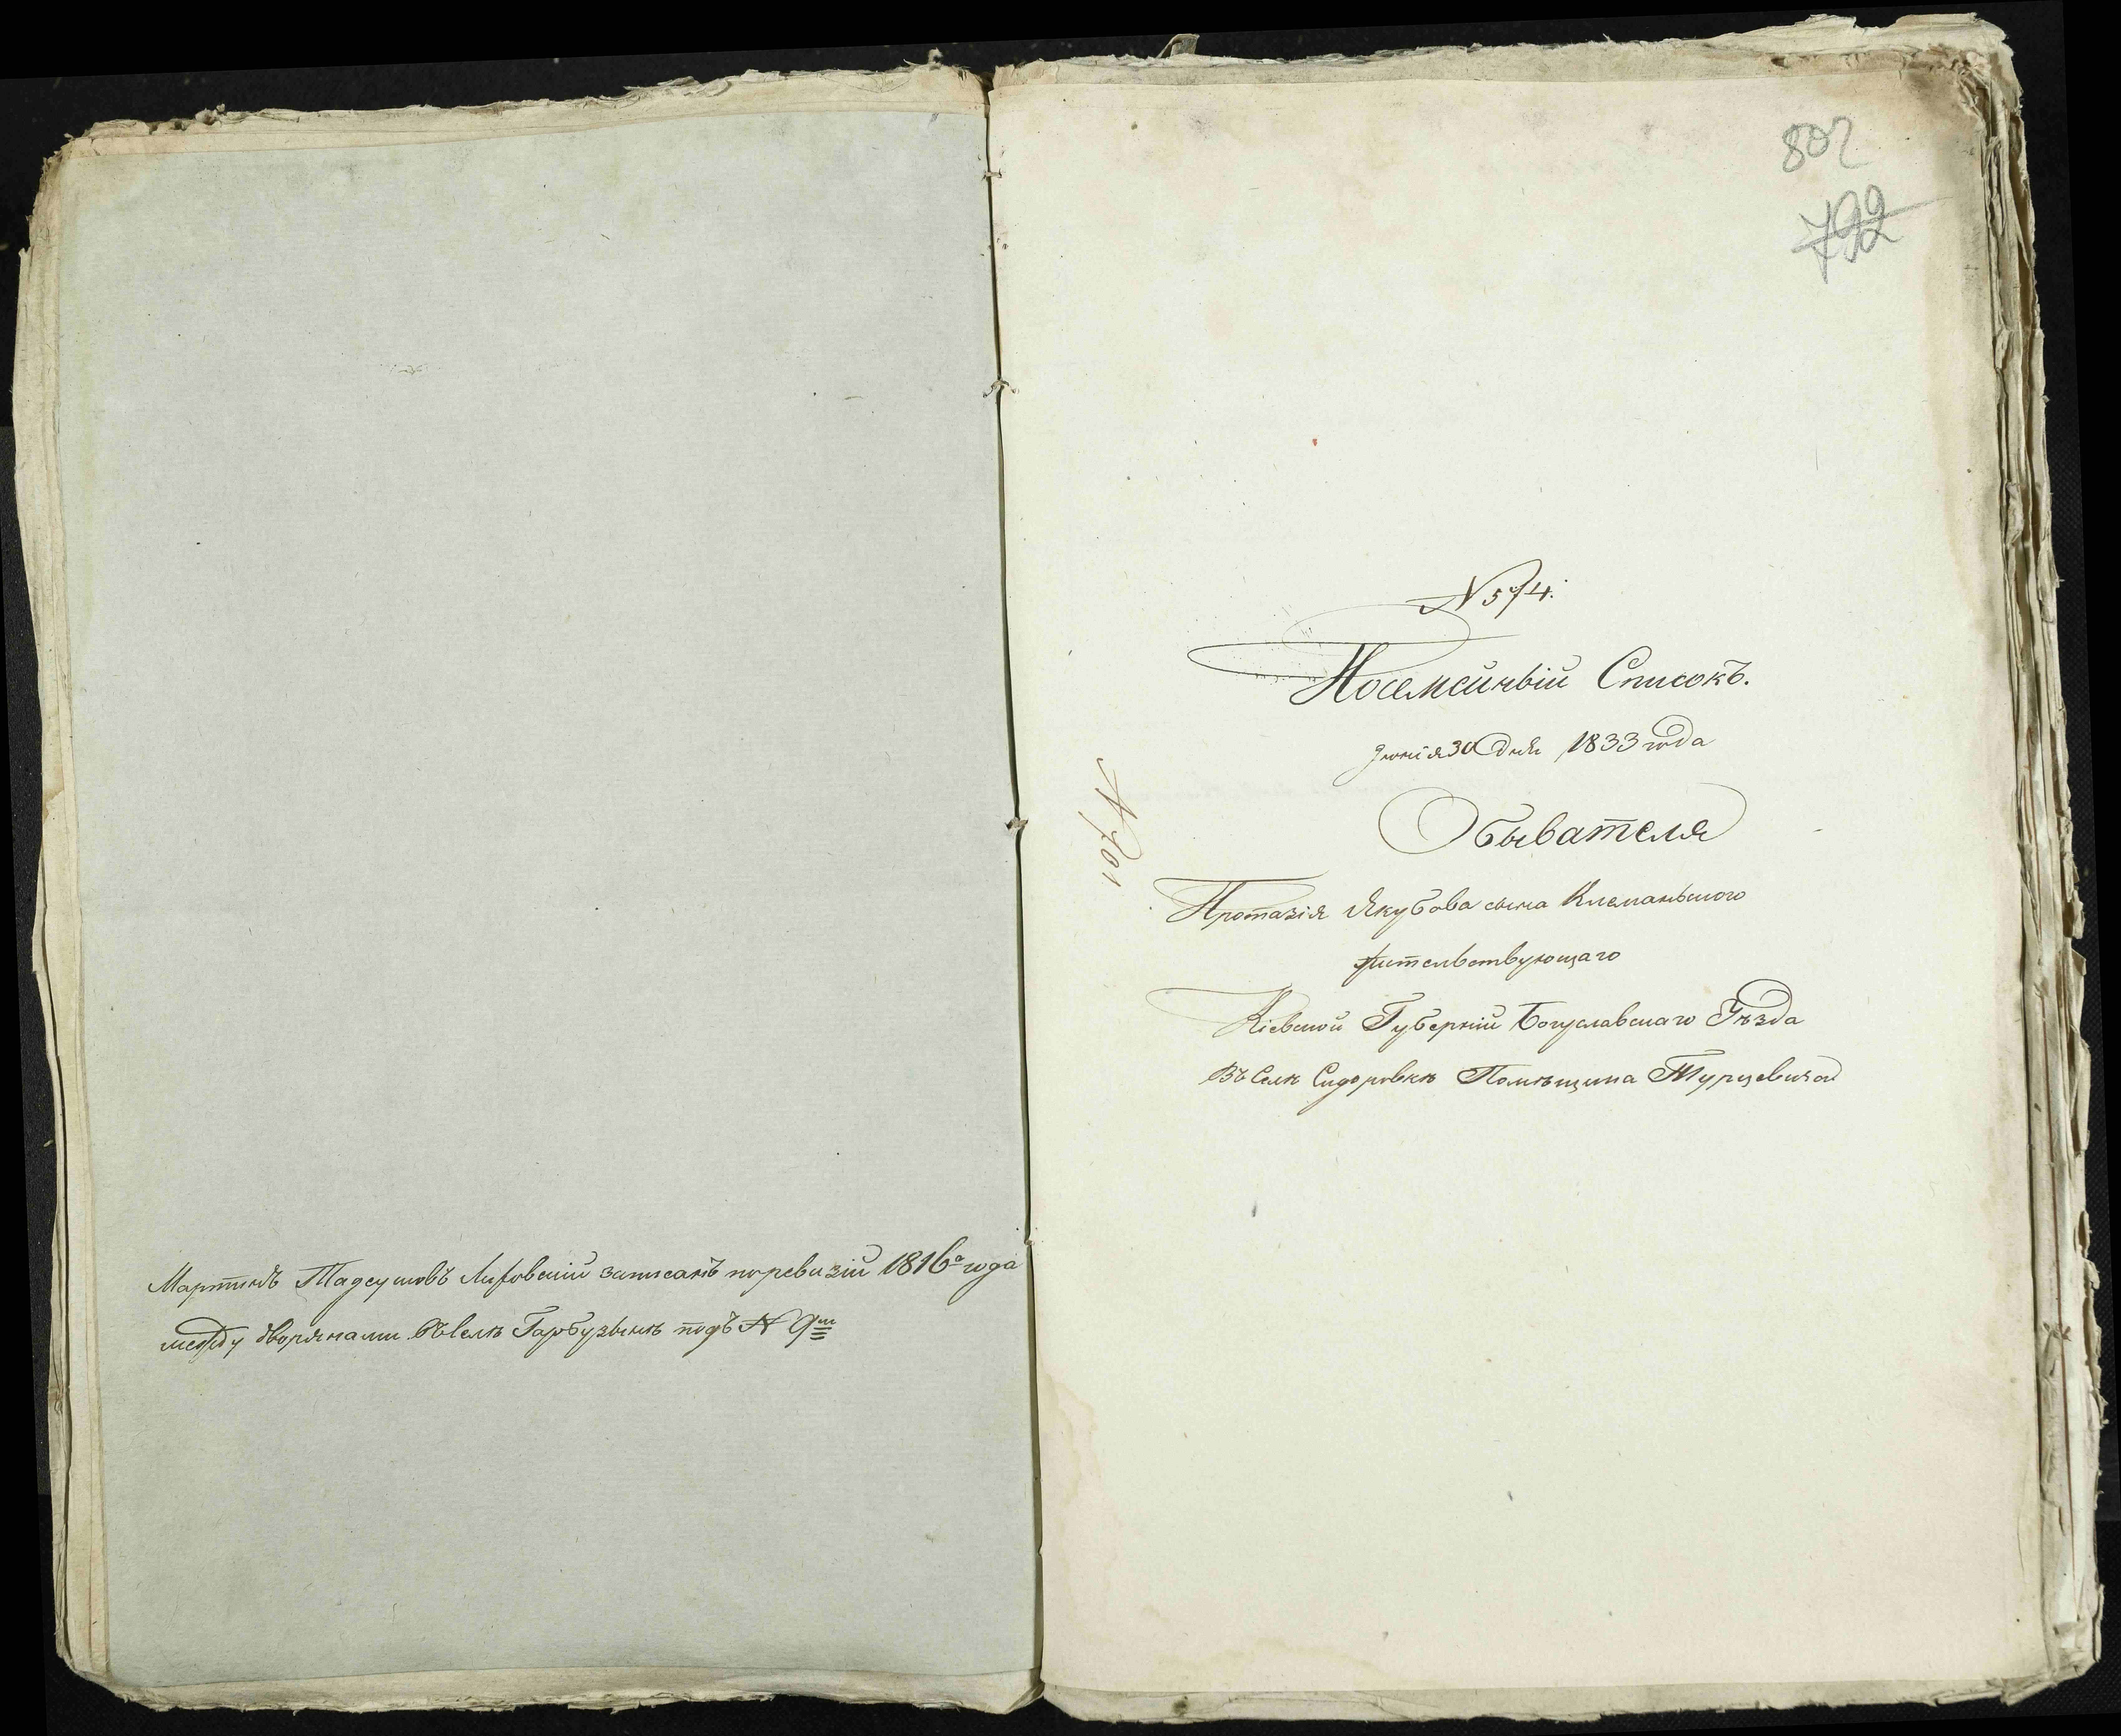 Мартинъ Тадеушовъ Лиховскій записанъ поревизіи 1816го года
между дворянами въ селѣ Гарбузынѣ подъ N 9мъ
802
792
N 574.
Посемейный Списокъ.
Іюнія 30 дня 1833 года
Обывателя
N 701
Протазія Якубова сына
жительствующаго
Кіевской Губерніи Богуславскаго Уѣзда
Въ Селѣ Сидоровкѣ Помѣщика